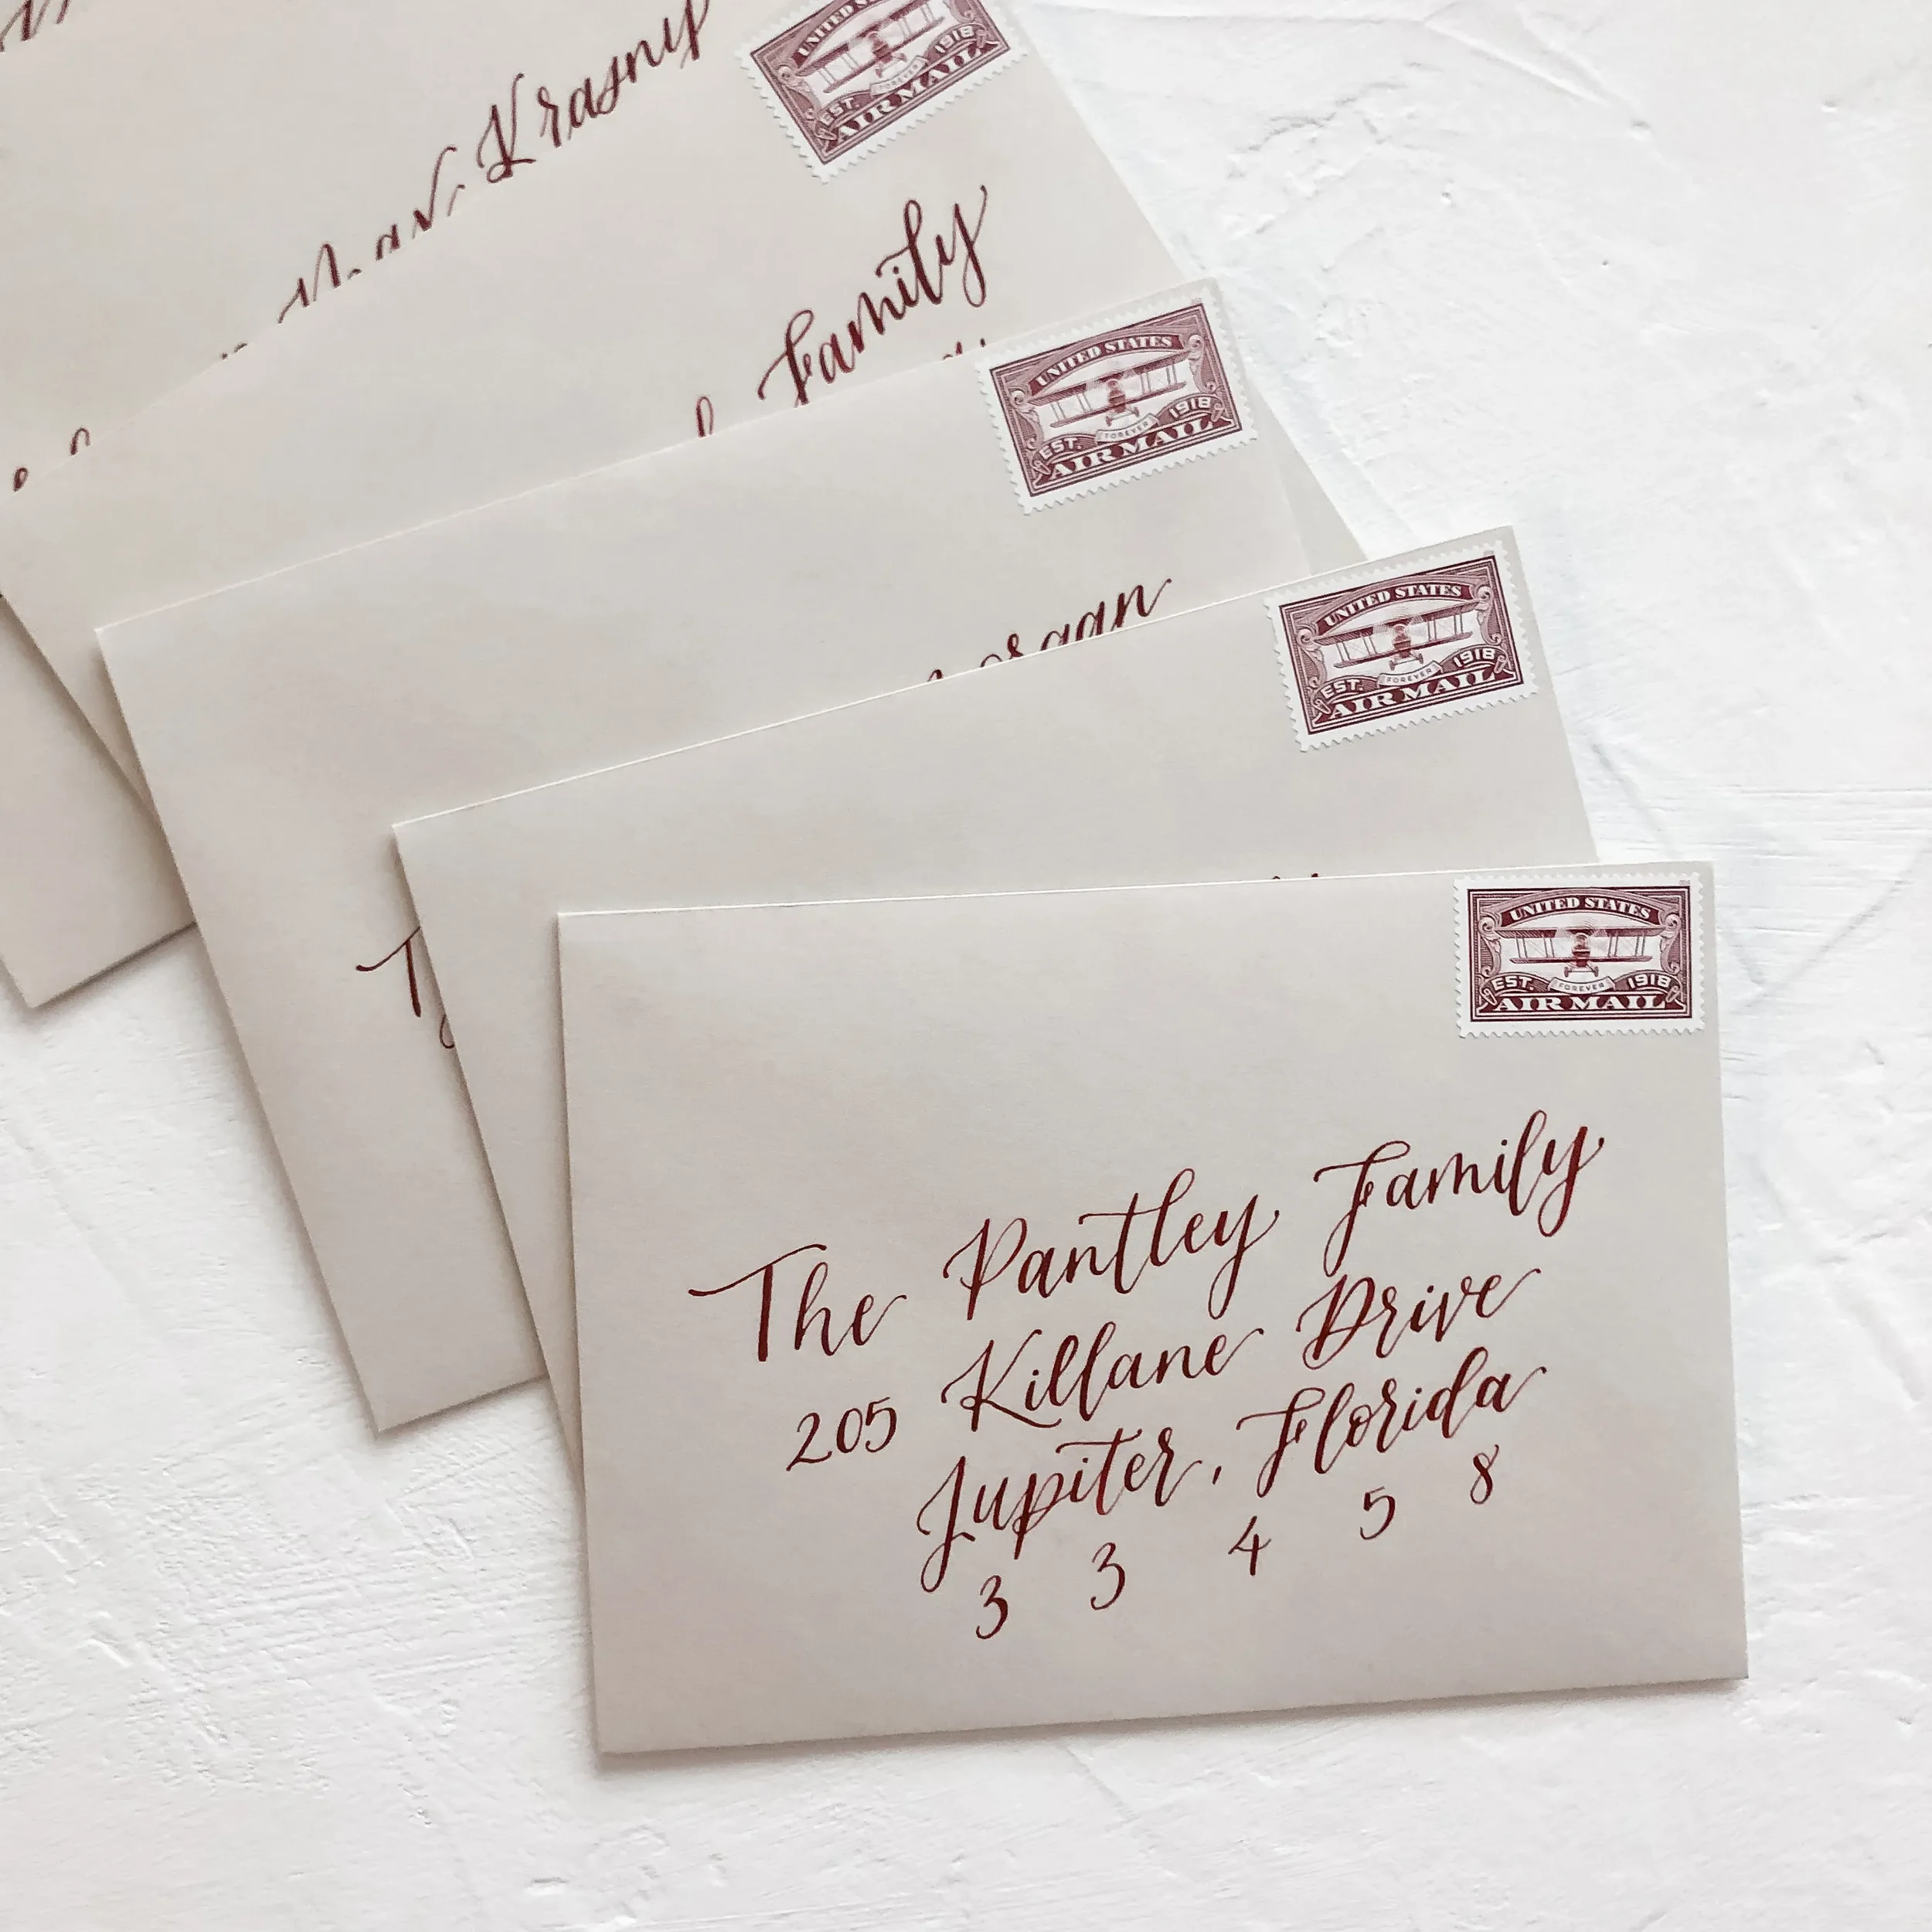 Krasny
UNITED STATES
EST. 1918
FOREVER
AIR MAIL
Family
UNITED STATES
EST. 1918
FOREVER
AIR MAIL
UNITED STATES
EST. 1918
FOREVER
AIR MAIL
UNITED STATES
EST. 1918
FOREVER
AIR MAIL
The Pantley Family
205 Killane Drive
Jupiter, Florida
3 3 4 5 8